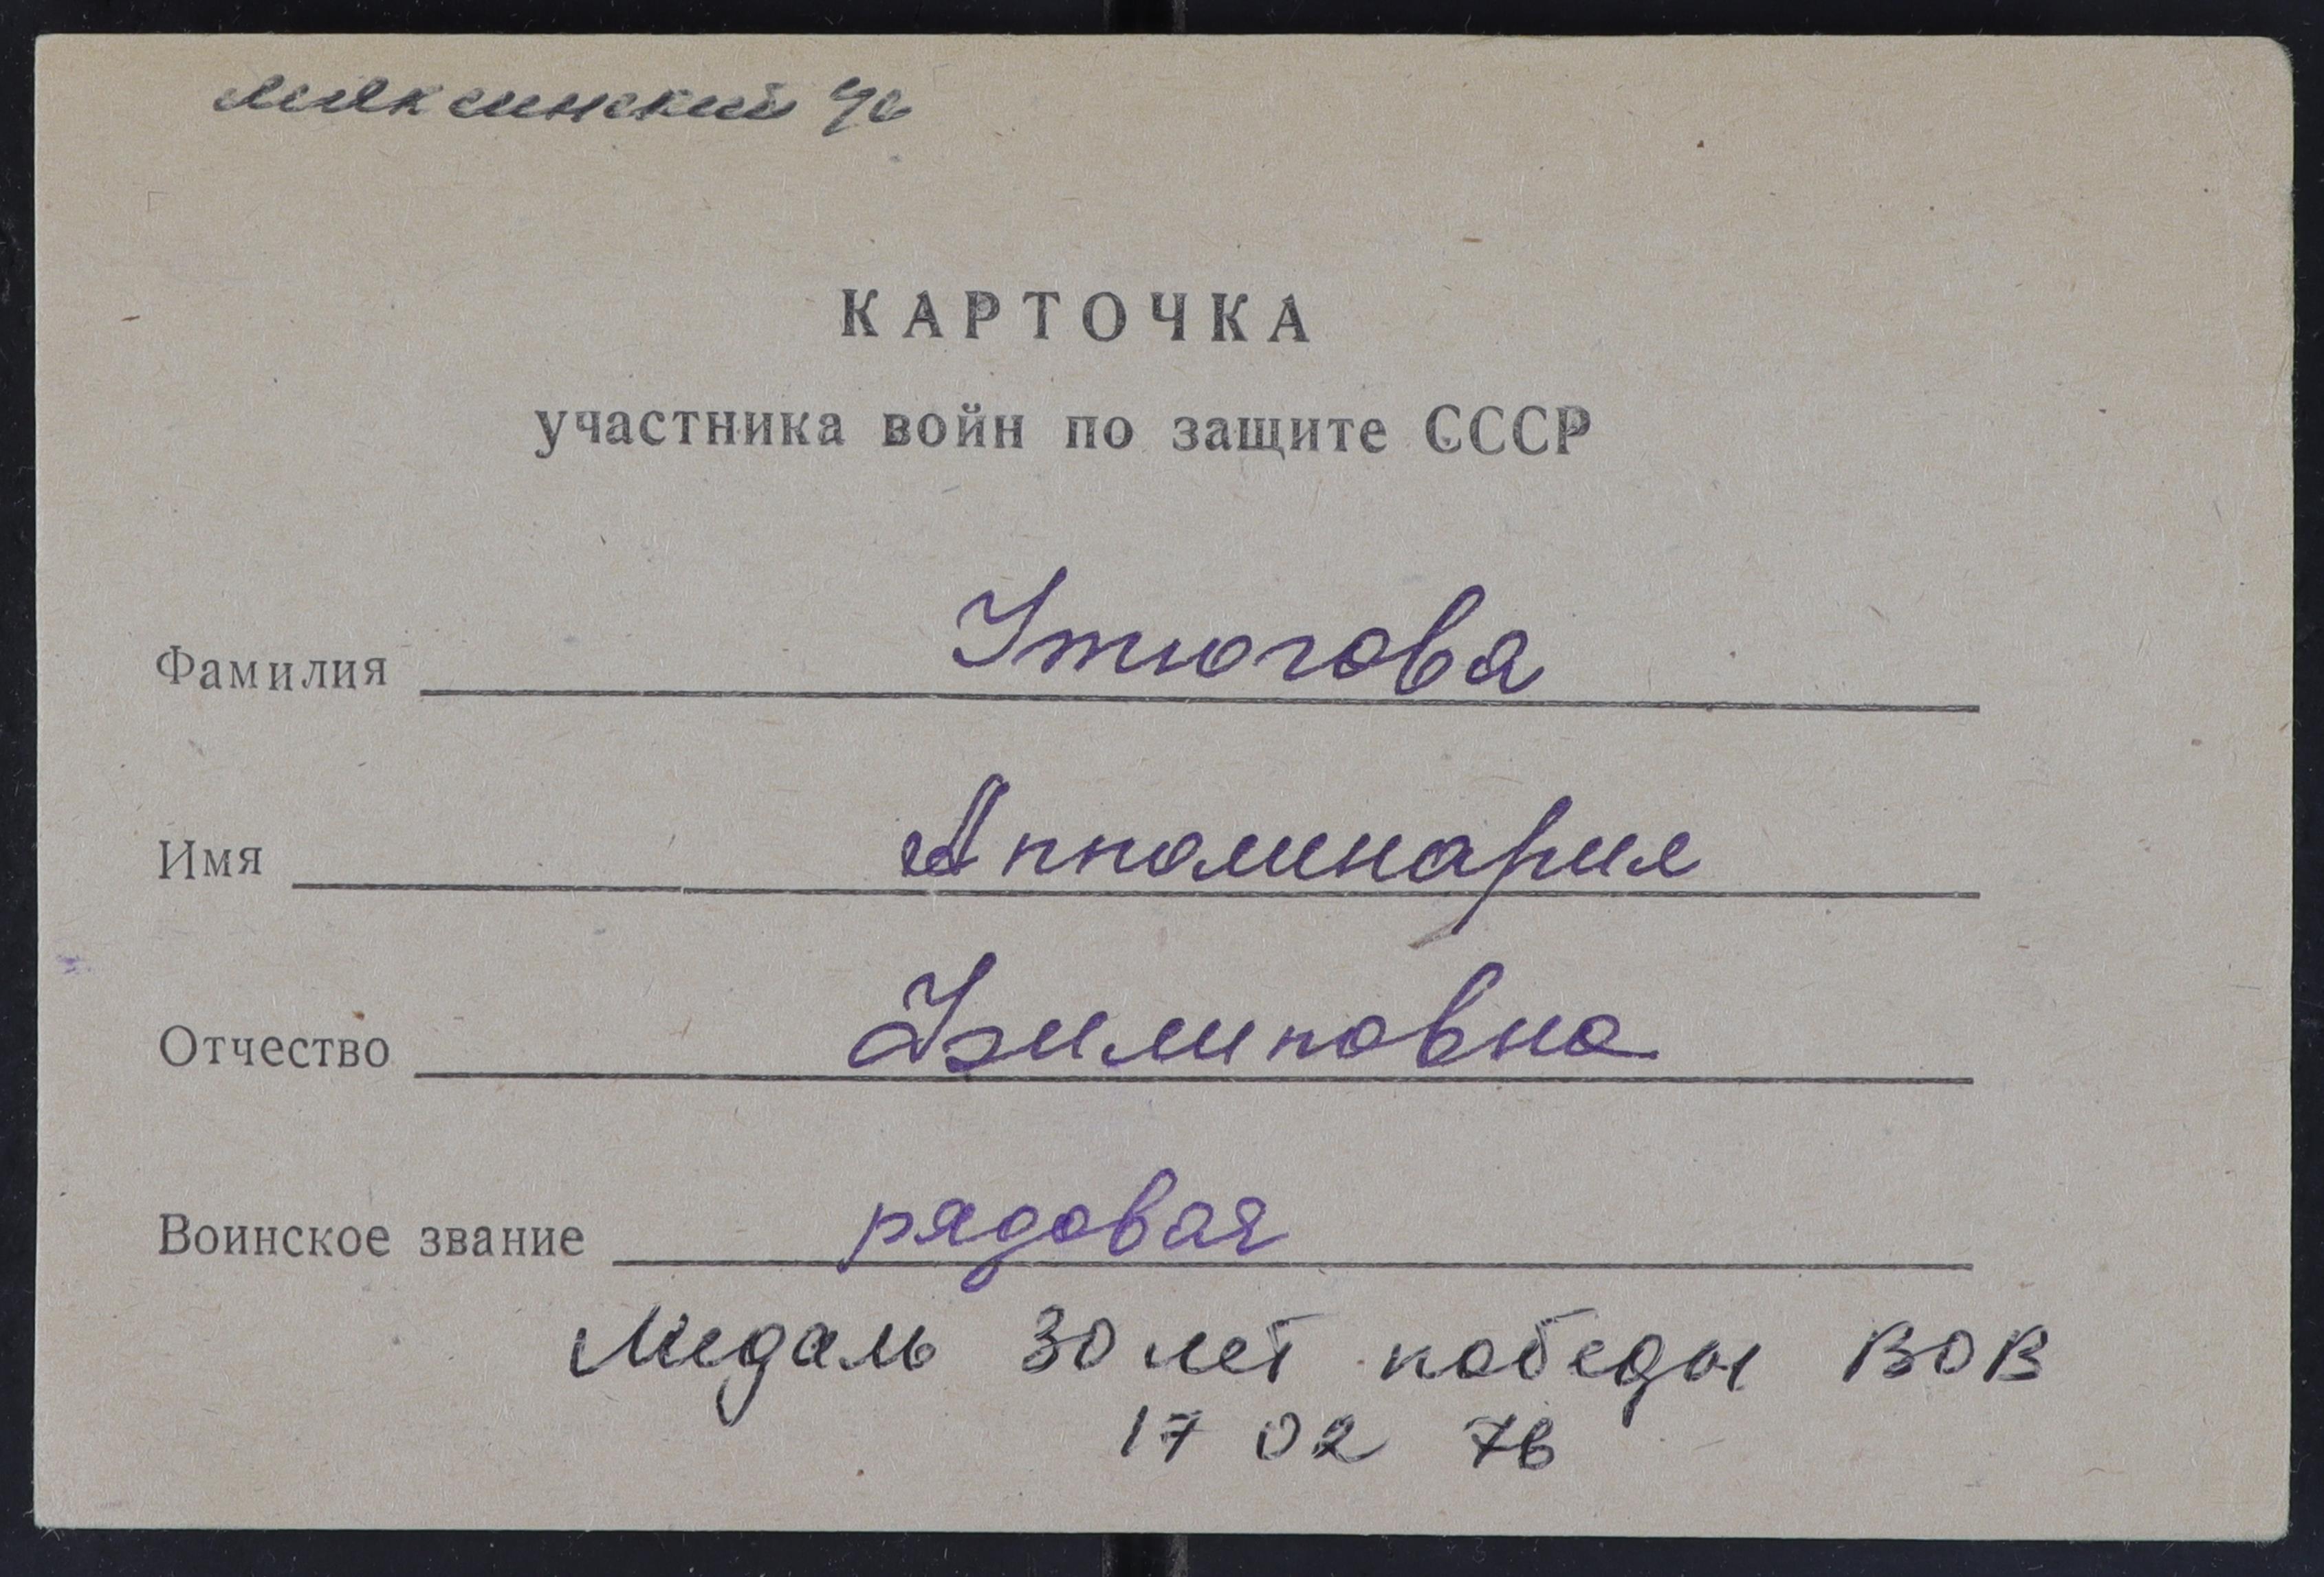 Мяксинский
КАРТОЧКА
участника войн по защите СССР
Фамилия Утюгова
Имя Апполинария
Отчество Филиповна
Воинское звание рядовая
Медаль 30 лет победы ВОВ
17 02 76